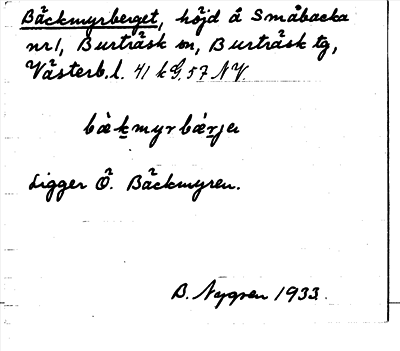 Bäckmyrberget, höjd å Småbacka
nr1, Burträsk sn, Burträsk tg,
Västerb.l. 41 k G, 57 NV.
bäkmyrbärja
Ligger Ö. Bäckmyren.
B. Nygren 1933.